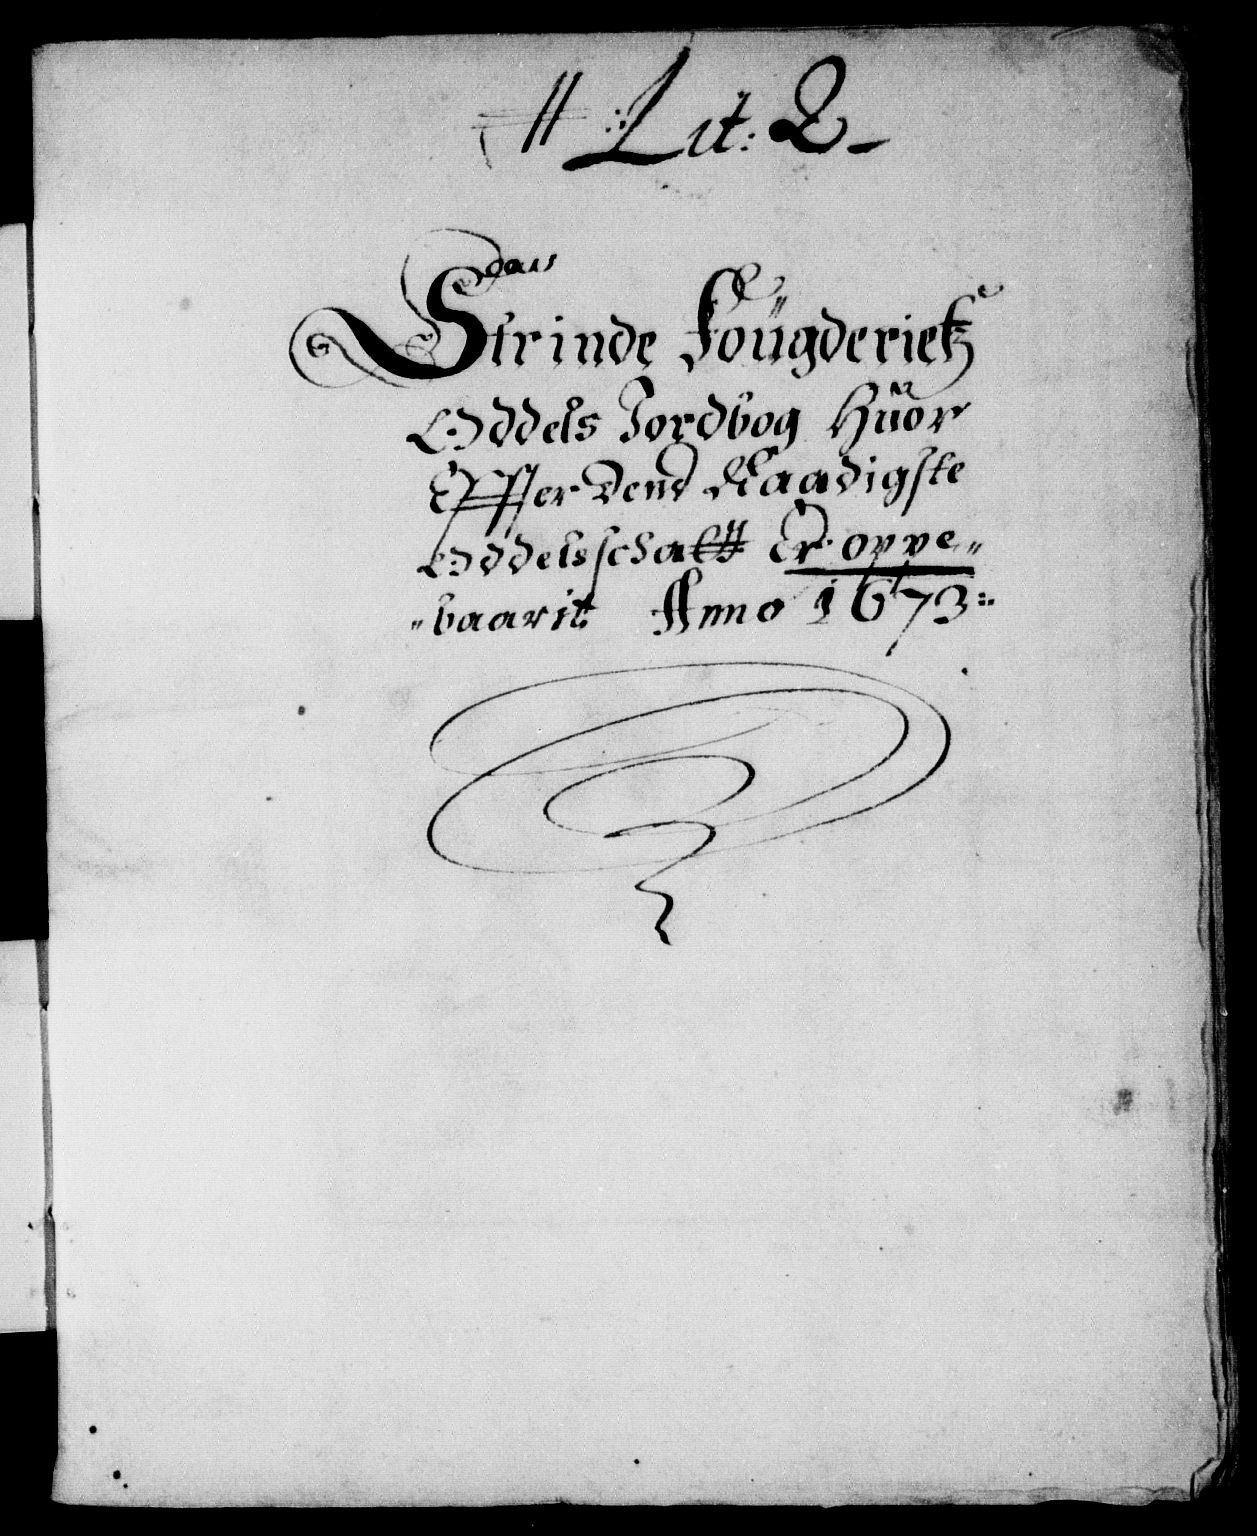 Lit: Q
Strinde Foügderietz
Oddels Jordbog Hüor
Effter Dend Naadigste
Oddelsschatt Er oppe„
„baarit Anno 1673